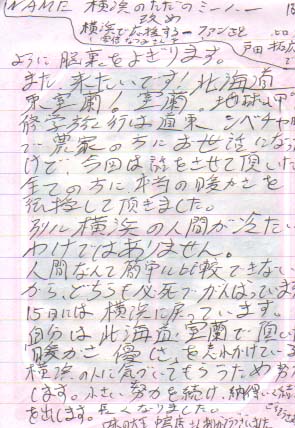 NAME 横浜のただのミーハー
改め
横浜で応援するファンこと
戸田
ように脳裏をよぎります。
また来たいです！北海道
東室蘭！室蘭。地球岬。
修学旅行は道東 シベチャ
で農家の方にお世話になり
けで、今回は話をさせて頂いた
全ての方に本当の暖かさを
伝授して頂きました。
別に横浜の人間が冷たい
わけではありません。
人間なんて簡単に比較できない
から、どちらも必死でがんばっています
15日には横浜に戻っています。
自分は北海道 室蘭で頂いた
暖かさ 優しさを
横浜の人に気づいてもらうためお
します。小さい努力を続け、納得いく
を出します。長くなりました。